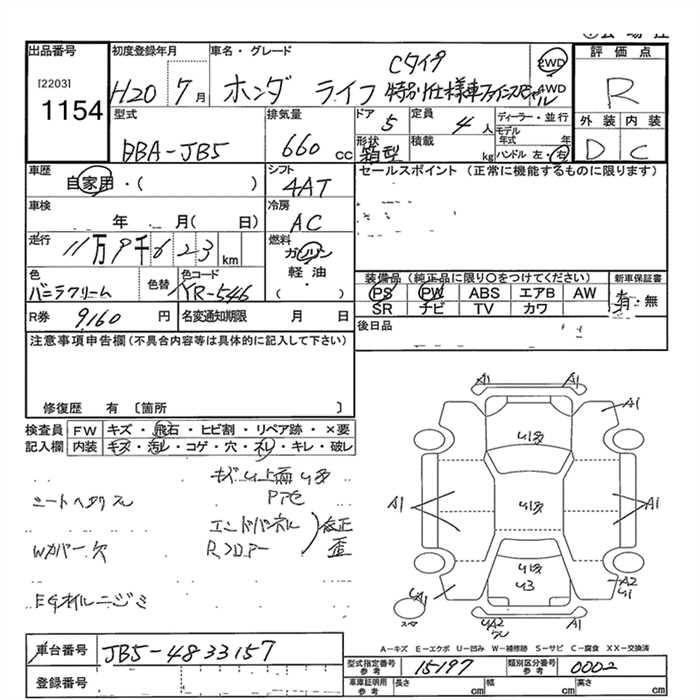 出品番号
[2203]
1154
初度登録年月
H20 7月
車名・グレード
ホンダ ライフ
Cタイプ
2WD
4WD
評価点
R
外装 内装
D C
型式
DBA-JB5
排気量
660 cc
ドア
5
定員
4 人
形状
箱型
積載
kg
ディーラー・並行
モデル
年式 年
ハンドル 左・右
車歴
自家用・( )
シフト
4AT
セールスポイント (正常に機能するものに限ります)
車検
年 月( 日)
冷房
AC
走行
11万9千623 km
燃料
ガソリン
軽・油
( )
色
バニラクリーム
色替
色コード
YR-546
装備品 (純正品に限り〇をつけてください)
PS PW ABS エアB AW
SR ナビ TV カワ
新車保証書
有・無
R券 9,160 円
名変通知期限 月 日
後日品
注意事項申告欄(不具合内容等は具体的に記入して下さい)
修復歴 有 〔箇所 〕
検査員
記入欄
FW キズ・飛石・ヒビ割・リペア跡・×要
内装 キズ・汚レ・コゲ・穴・スレ・キレ・破レ
シートヘタリ
Wカバー欠
EGオイルニジミ
エンドパネル
Rフロアー
修正
歪
A1 A1
A1
A1 A1
A1
A2
スペア
A-キズ E-エクボ U-凹み W-補修跡 S-サビ C-腐食 XX-交換済
車台番号 JB5-4833157
登録番号
型式指定
参考番号
15197
類別区分番号
参考
0002
車庫証明用
参考
長さ cm 幅 cm 高さ cm